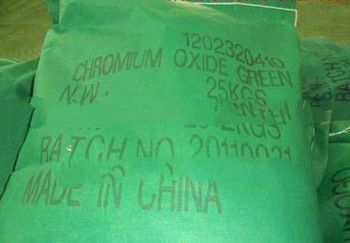 1202320410
CHROMIUM OXIDE GREEN
N.W. 25KGS
BATCH NO. 20110021
MADE IN CHINA